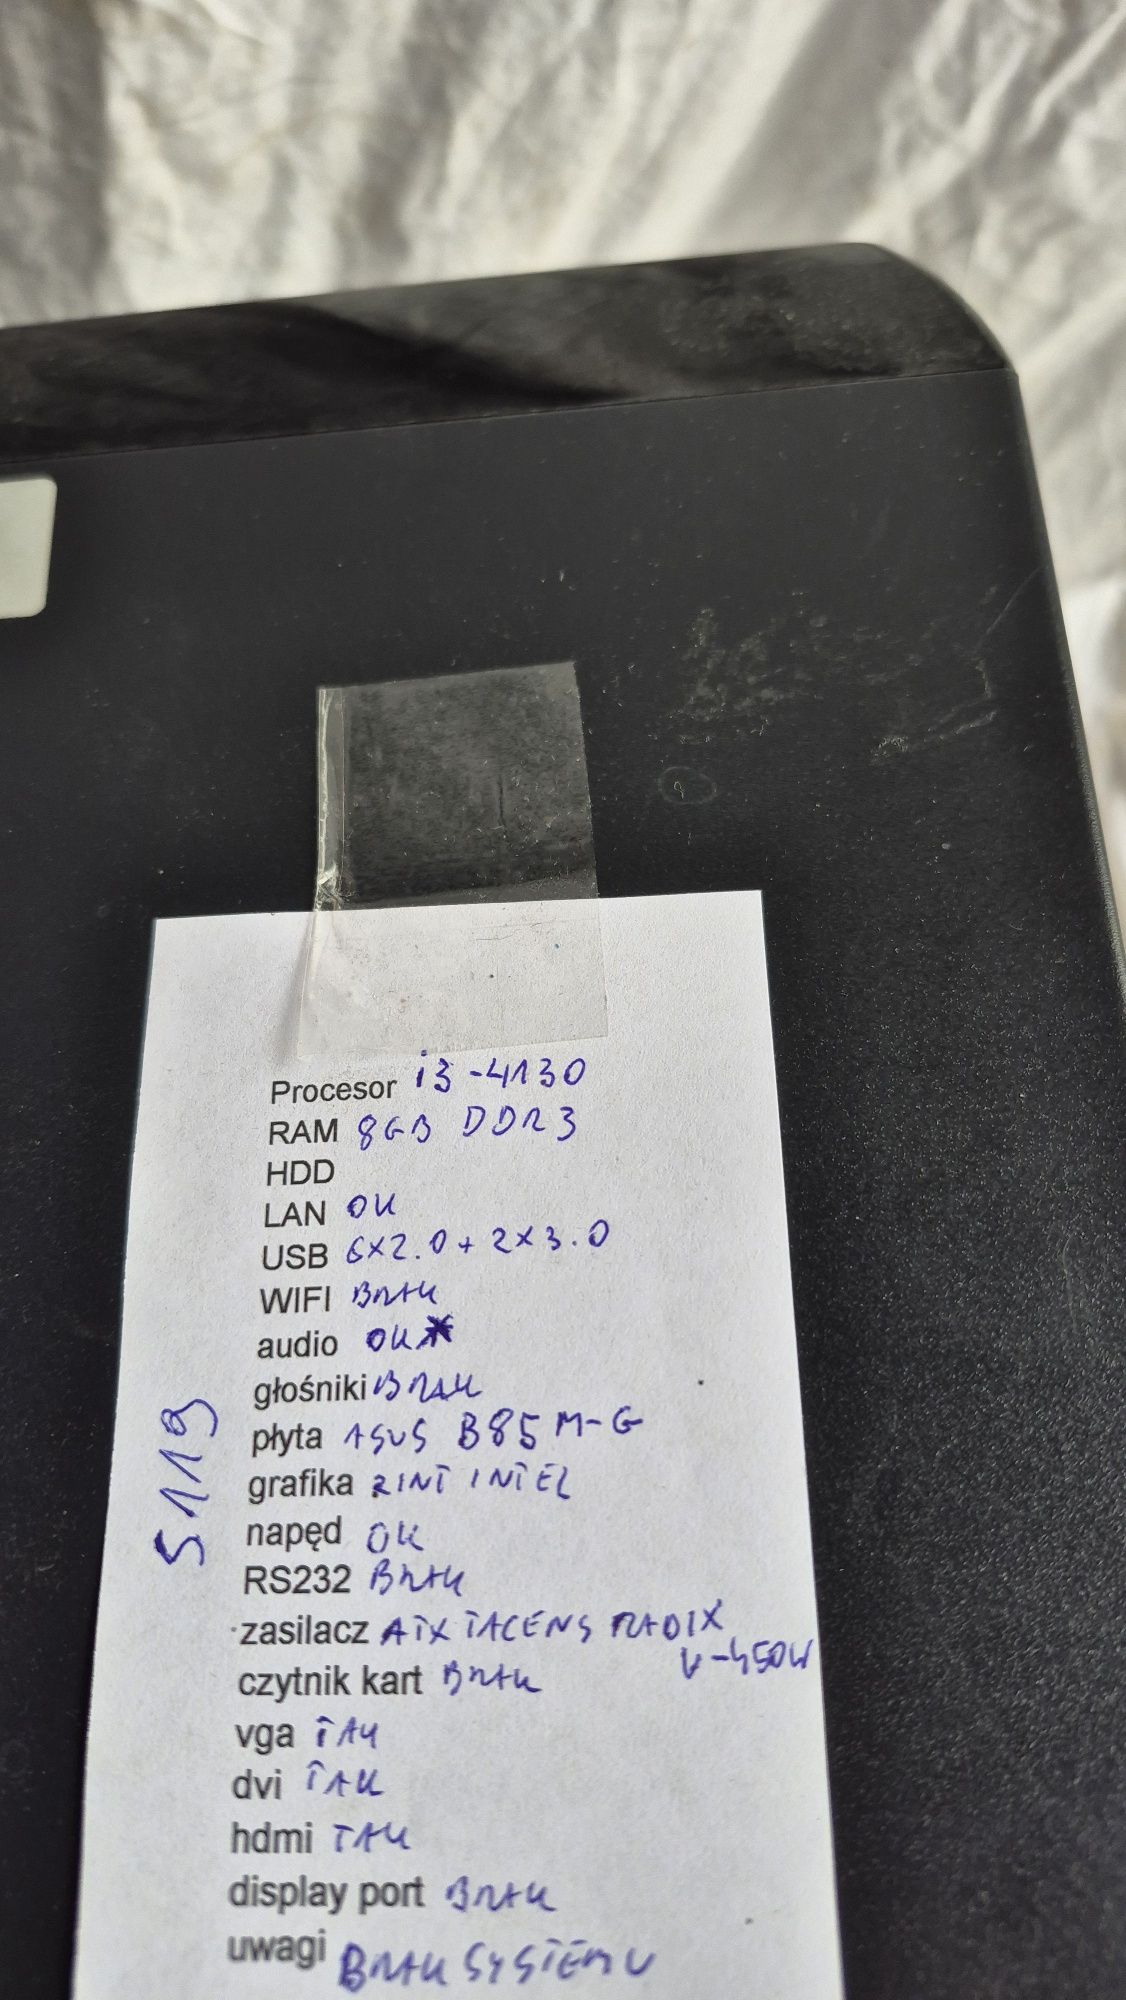 Procesor i3-4130
RAM 8GB DDR3
HDD
LAN OK
USB 6x2.0 + 2x3.0
WIFI BRAK
audio OK
głośniki BRAK
płyta ASUS B85M-G
grafika ZINT INTEL
napęd OK
RS232 BRAK
zasilacz ATX TACENS RADIX
V-450W
czytnik kart BRAK
vga TAK
dvi TAK
hdmi TAK
display port BRAK
uwagi BRAK SYSTEMU
5119